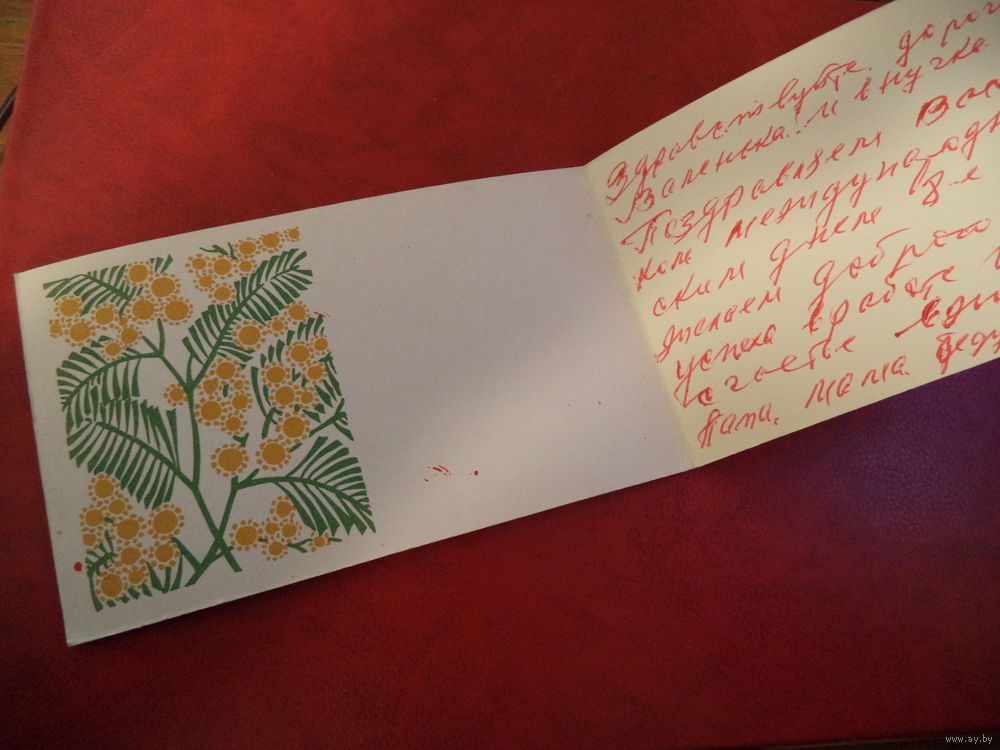 Здравствуйте дорог
Валенька! и внучка
Поздравляем Вас
ком международн
ским днем 8-е
желаем доброго
успеха в работе
счастье
Папа, мама
www.ay.by